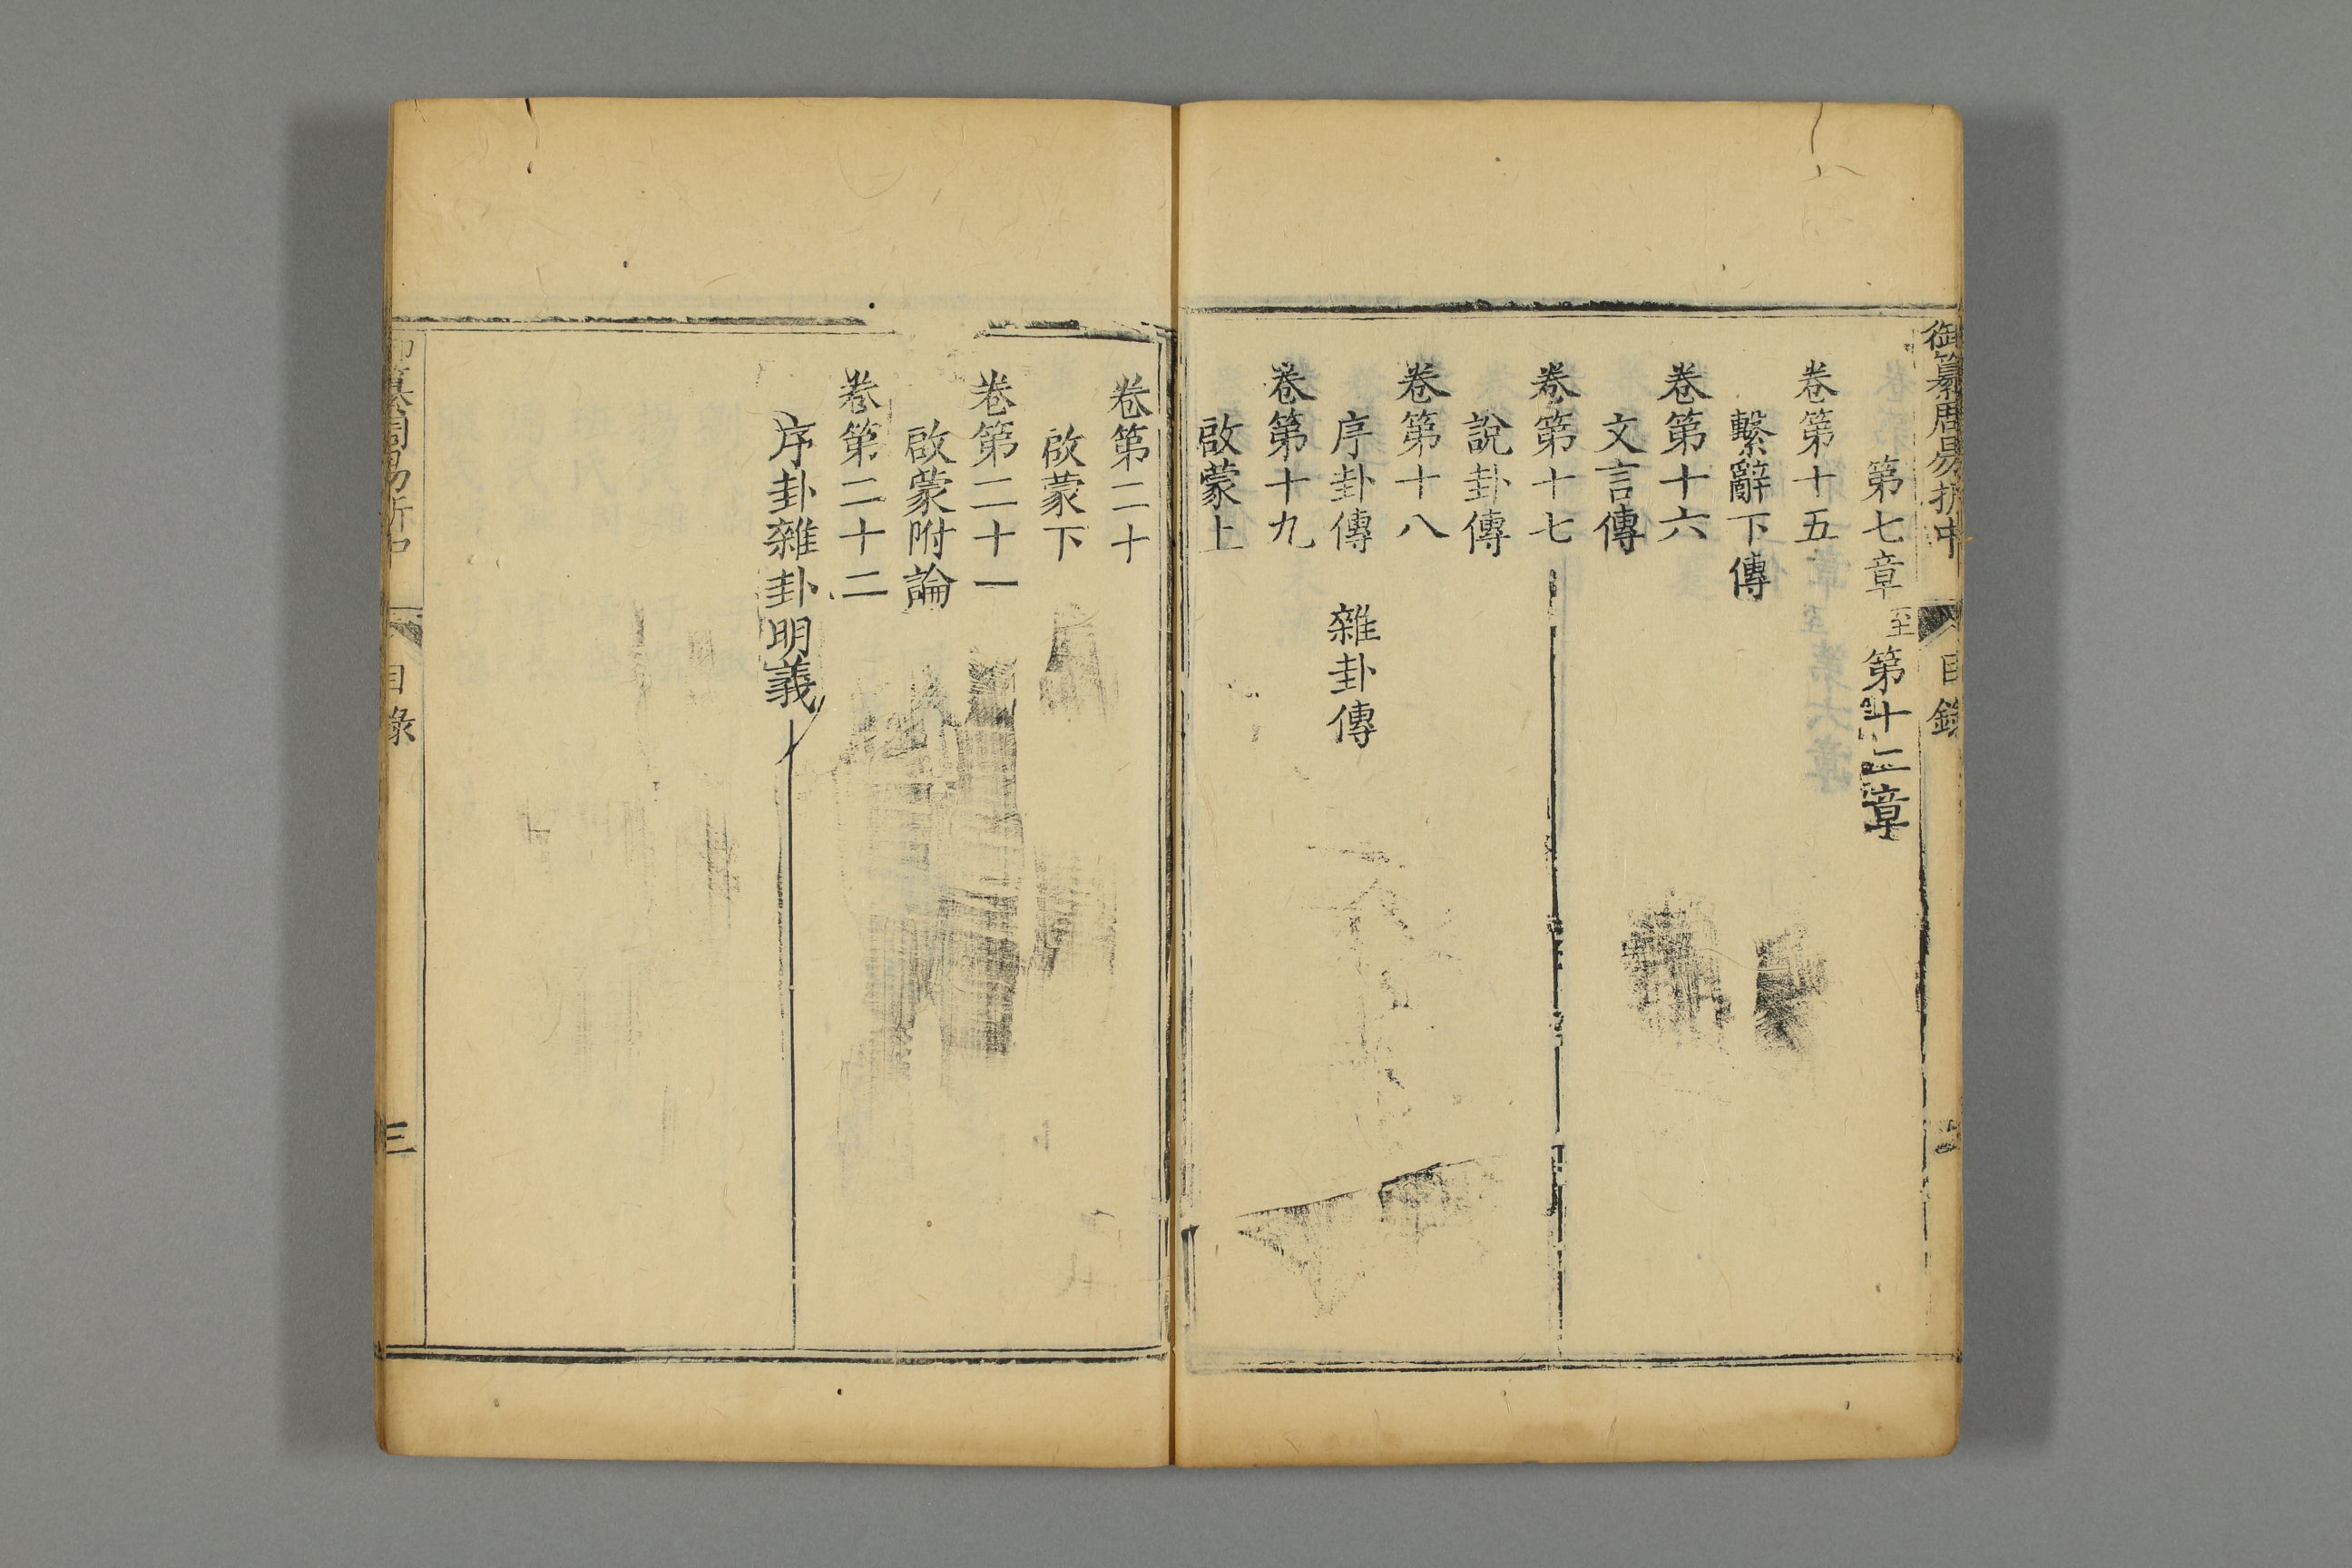 御纂周易折中
目錄
第七章至第十二章
卷第十五
繫辭下傳
卷第十六
文言傳
卷第十七
說卦傳
卷第十八
序卦傳 雜卦傳
卷第十九
啟蒙上
卷第二十
啟蒙下
卷第二十一
啟蒙附論
卷第二十二
序卦雜卦明義
御纂周易折中
目錄
三